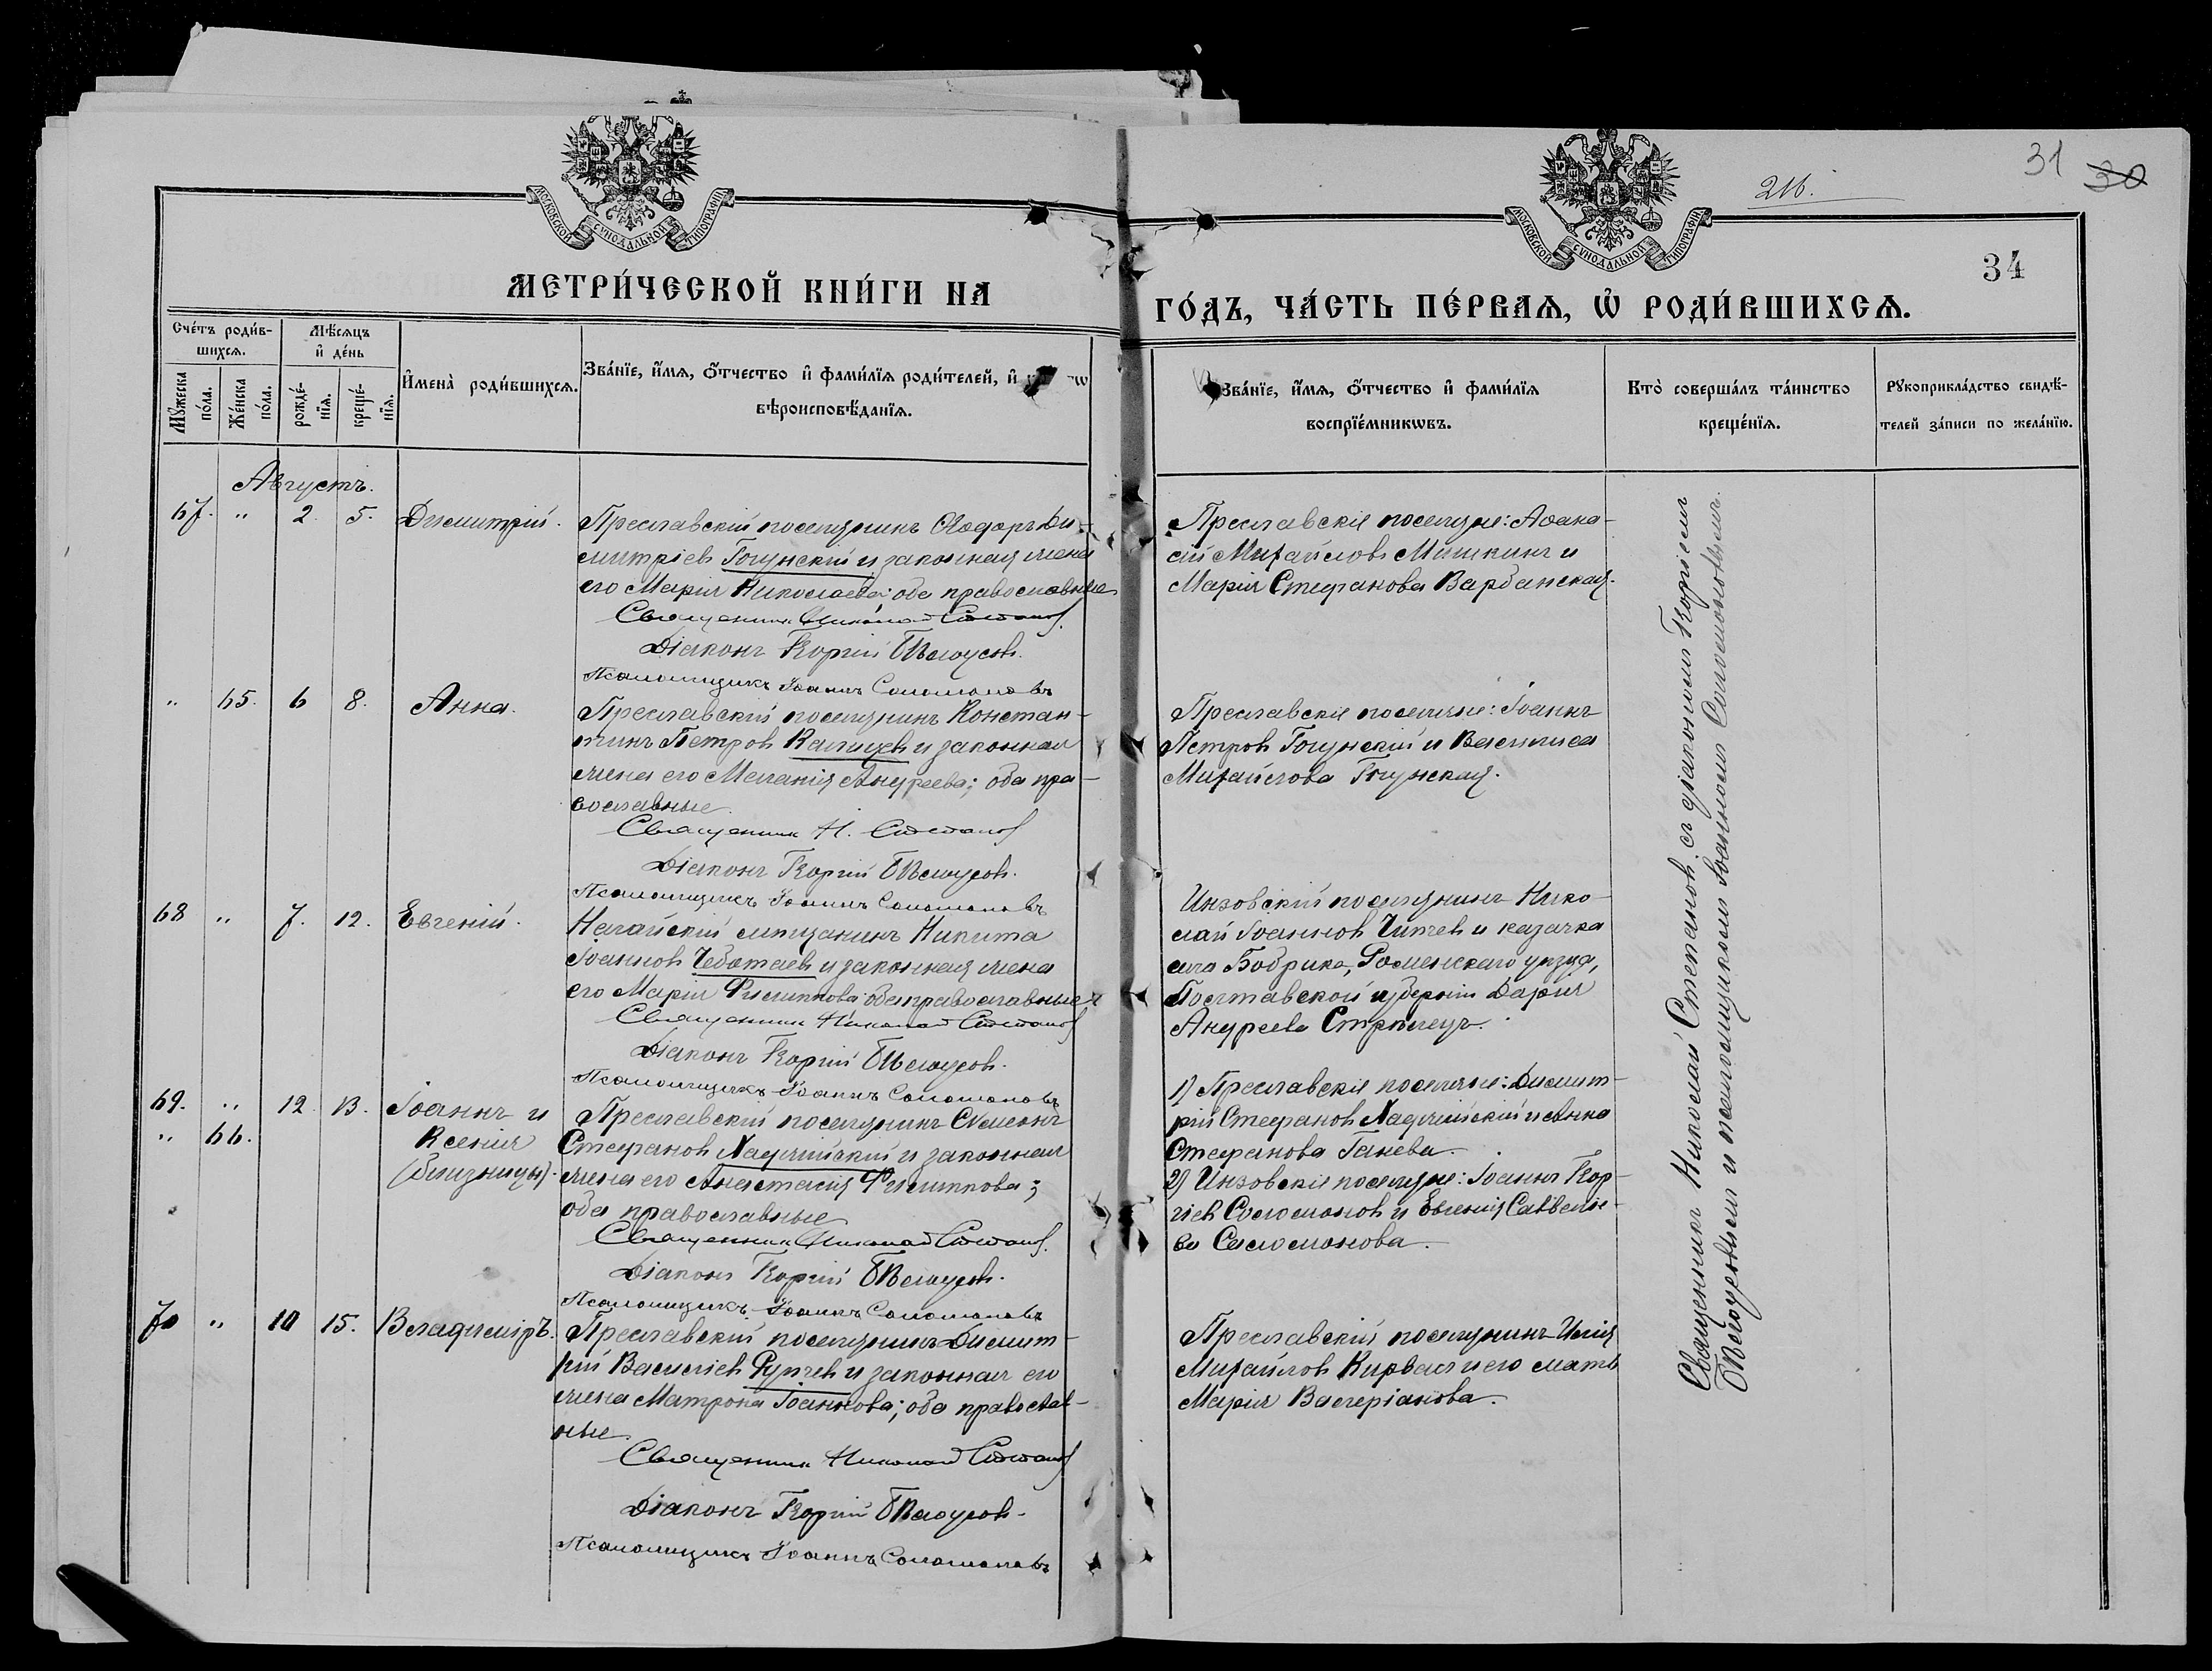 31 30
216.
34
МОСКОВСКОЙ СѴНОДАЛЬНОЙ ТИПОГРАФІИ
МОСКОВСКОЙ СѴНОДАЛЬНОЙ ТИПОГРАФІИ
МЕТРИ́ЧЕСКОЙ КНИ́ГИ НА
ГО́ДЪ, ЧА́СТЬ ПЕ́РВАѦ, Ѡ҆ РОДИ́ВШИХСѦ.
Сче́тъ роди́в-
шихсѧ.
Мꙋ́жеска по́ла.
Же́нска по́ла.
Мѣ́сѧцъ
и҆ де́нь
рожде́-
нїѧ.
креще́-
нїѧ.
И҆мена̀ роди́вшихсѧ.
Зва́нїе, и҆́мѧ, ѻ҆́тчество и҆ фами́лїѧ роди́телей, и҆
вѣроисповѣ́данїѧ.
Зва́нїе, и҆́мѧ, ѻ҆́тчество и҆ фами́лїѧ
воспрїе́мникѡвъ.
Кто̀ соверша́лъ та́инство
креще́нїѧ.
Рꙋкоприкла́дство свидѣ́-
телей за́писи по жела́нїю.
Августъ.
67. " 2. 5. Димитрій.
Преславскій поселянинъ Ѳеодоръ Ди-
митріевъ Гогунскій и законная жена
его Марія Николаева; оба православные
Священникъ Николай Степановъ.
Діаконъ Георгій Бѣлоусовъ.
Псаломщикъ Іоаннъ Соломоновъ
Преславскіе поселяне: Аѳана-
сій Михайловъ Мишкинъ и
Марія Стефанова Варбанская.
" 65. 6 8. Анна.
Преславскій поселянинъ Констан-
тинъ Петровъ Калицевъ и законная
жена его Меланія Андреева; оба пра-
вославные.
Священникъ Н. Степановъ
Діаконъ Георгій Бѣлоусовъ.
Псаломщикъ Іоаннъ Соломоновъ
Преславскіе поселяне: Іоаннъ
Петровъ Гогунскій и Василиса
Михайлова Гогунская.
68 " 7. 12. Евгеній.
Ногайскій мѣщанинъ Никита
Іоанновъ Чеботаевъ и законная жена
его Марія Филиппова; оба православные
Священникъ Николай Степановъ
Діаконъ Георгій Бѣлоусовъ.
Псаломщикъ Іоаннъ Соломоновъ
Инзовскій поселянинъ Нико-
лай Іоанновъ Чипчевъ и казачка
села Бобрика, Роменскаго уѣзда,
Полтавской губерніи Дарія
Андреева Стрѣлецъ.
69. " 12. 13. Іоаннъ и
" 66. Ксенія
(близнецы).
Преславскій поселянинъ Симеонъ
Стефановъ Хаджійскій и законная
жена его Анастасія Филиппова;
оба православные
Священникъ Николай Степановъ.
Діаконъ Георгій Бѣлоусовъ.
Псаломщикъ Іоаннъ Соломоновъ
1) Преславскіе поселяне: Димит-
рій Стефановъ Хаджійскій и Анна
Стефанова Ганева.
2) Инзовскіе поселяне: Іоаннъ Геор-
гіевъ Соломоновъ и Евгенія Савелье-
ва Соломонова.
70 " 10 15. Владиміръ.
Преславскій поселянинъ Димит-
рій Василіевъ Рупчевъ и законная его
жена Матрона Іоаннова; оба православ-
ные.
Священникъ Николай Степановъ
Діаконъ Георгій Бѣлоусовъ.
Псаломщикъ Іоаннъ Соломоновъ
Преславскій поселянинъ Илія
Михайловъ Кирвасъ и его мать
Марія Валеріанова.
Священникъ Николай Степановъ съ діакономъ Георгіемъ
Бѣлоусовымъ и псаломщикомъ Іоанномъ Соломоновымъ.